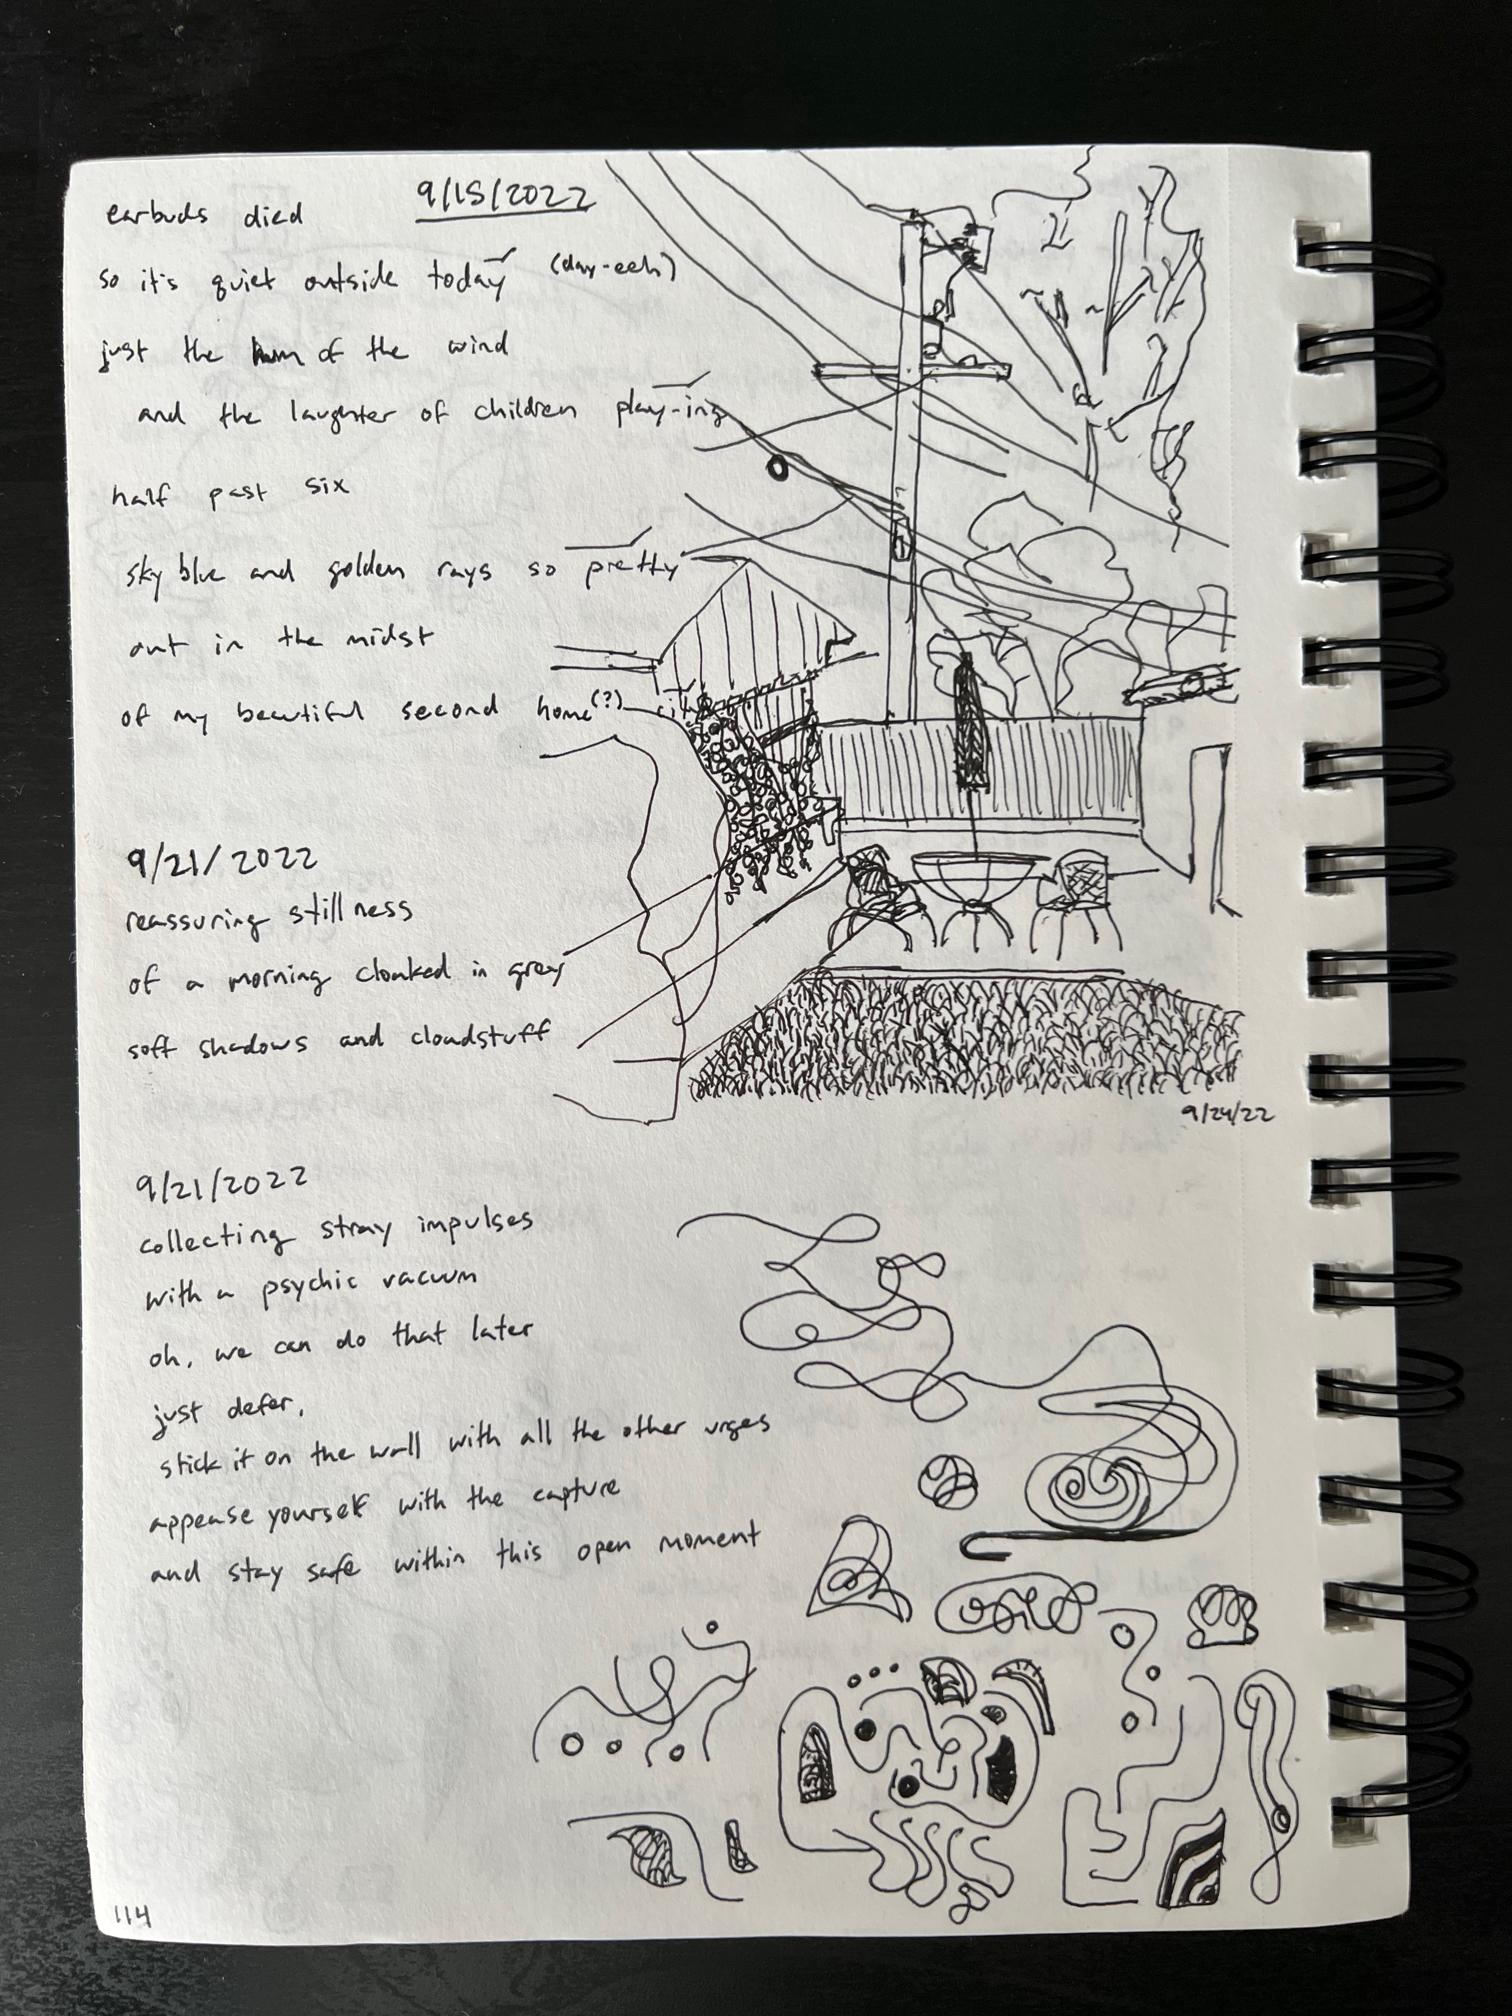 9/15/2022
earbuds died
so it's quiet outside today (day-eeh)
just the hum of the wind
and the laughter of children play-ing
half past six
sky blue and golden rays so pretty
out in the midst
of my beautiful second home(?) city
9/21/2022
reassuring stillness
of a morning cloaked in grey
soft shadows and cloudstuff
9/24/22
9/21/2022
collecting stray impulses
with a psychic vacuum
oh, we can do that later
just defer,
stick it on the wall with all the other urges
appease yourself with the capture
and stay safe within this open moment
114